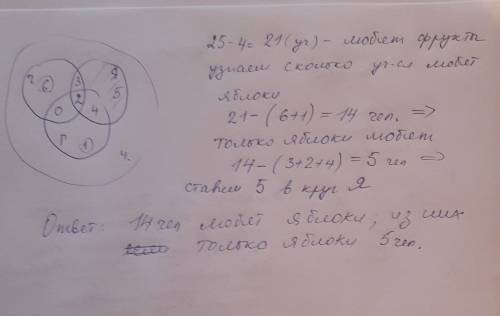 25-4=21(уч) - любят фрукты
узнаем сколько уч-ся любят
яблоки
21-(6+1)=14 чел. =>
только яблоки любят
14-(3+2+4)=5 чел =>
ставим 5 в круг Я
Ответ: 14 чел любят яблоки, из них
только яблоки 5 чел.
6 3 Я
2 5
0 4
1
4.